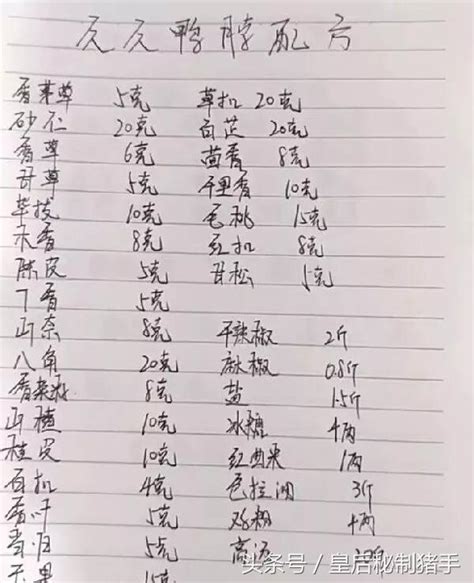 天天鸭脖配方
香茅草 5克 草扣 20克
砂仁 20克 白芷 20克
香草 6克 茴香 8克
甘草 5克 千里香 10克
毕拔 10克 毛桃 15克
木香 8克 红扣 8克
陈皮 5克 甘松 5克
丁香 5克
山奈 8克 干辣椒 2斤
八角 20克 麻椒 0.8斤
香菜籽 8克 盐 1.5斤
山楂 10克 冰糖 4两
桂皮 10克 红曲米 1两
白扣 4克 色拉油 3斤
香叶 5克 鸡粉 4两
当归 5克 高汤
头条号 / 皇后秘制猪手